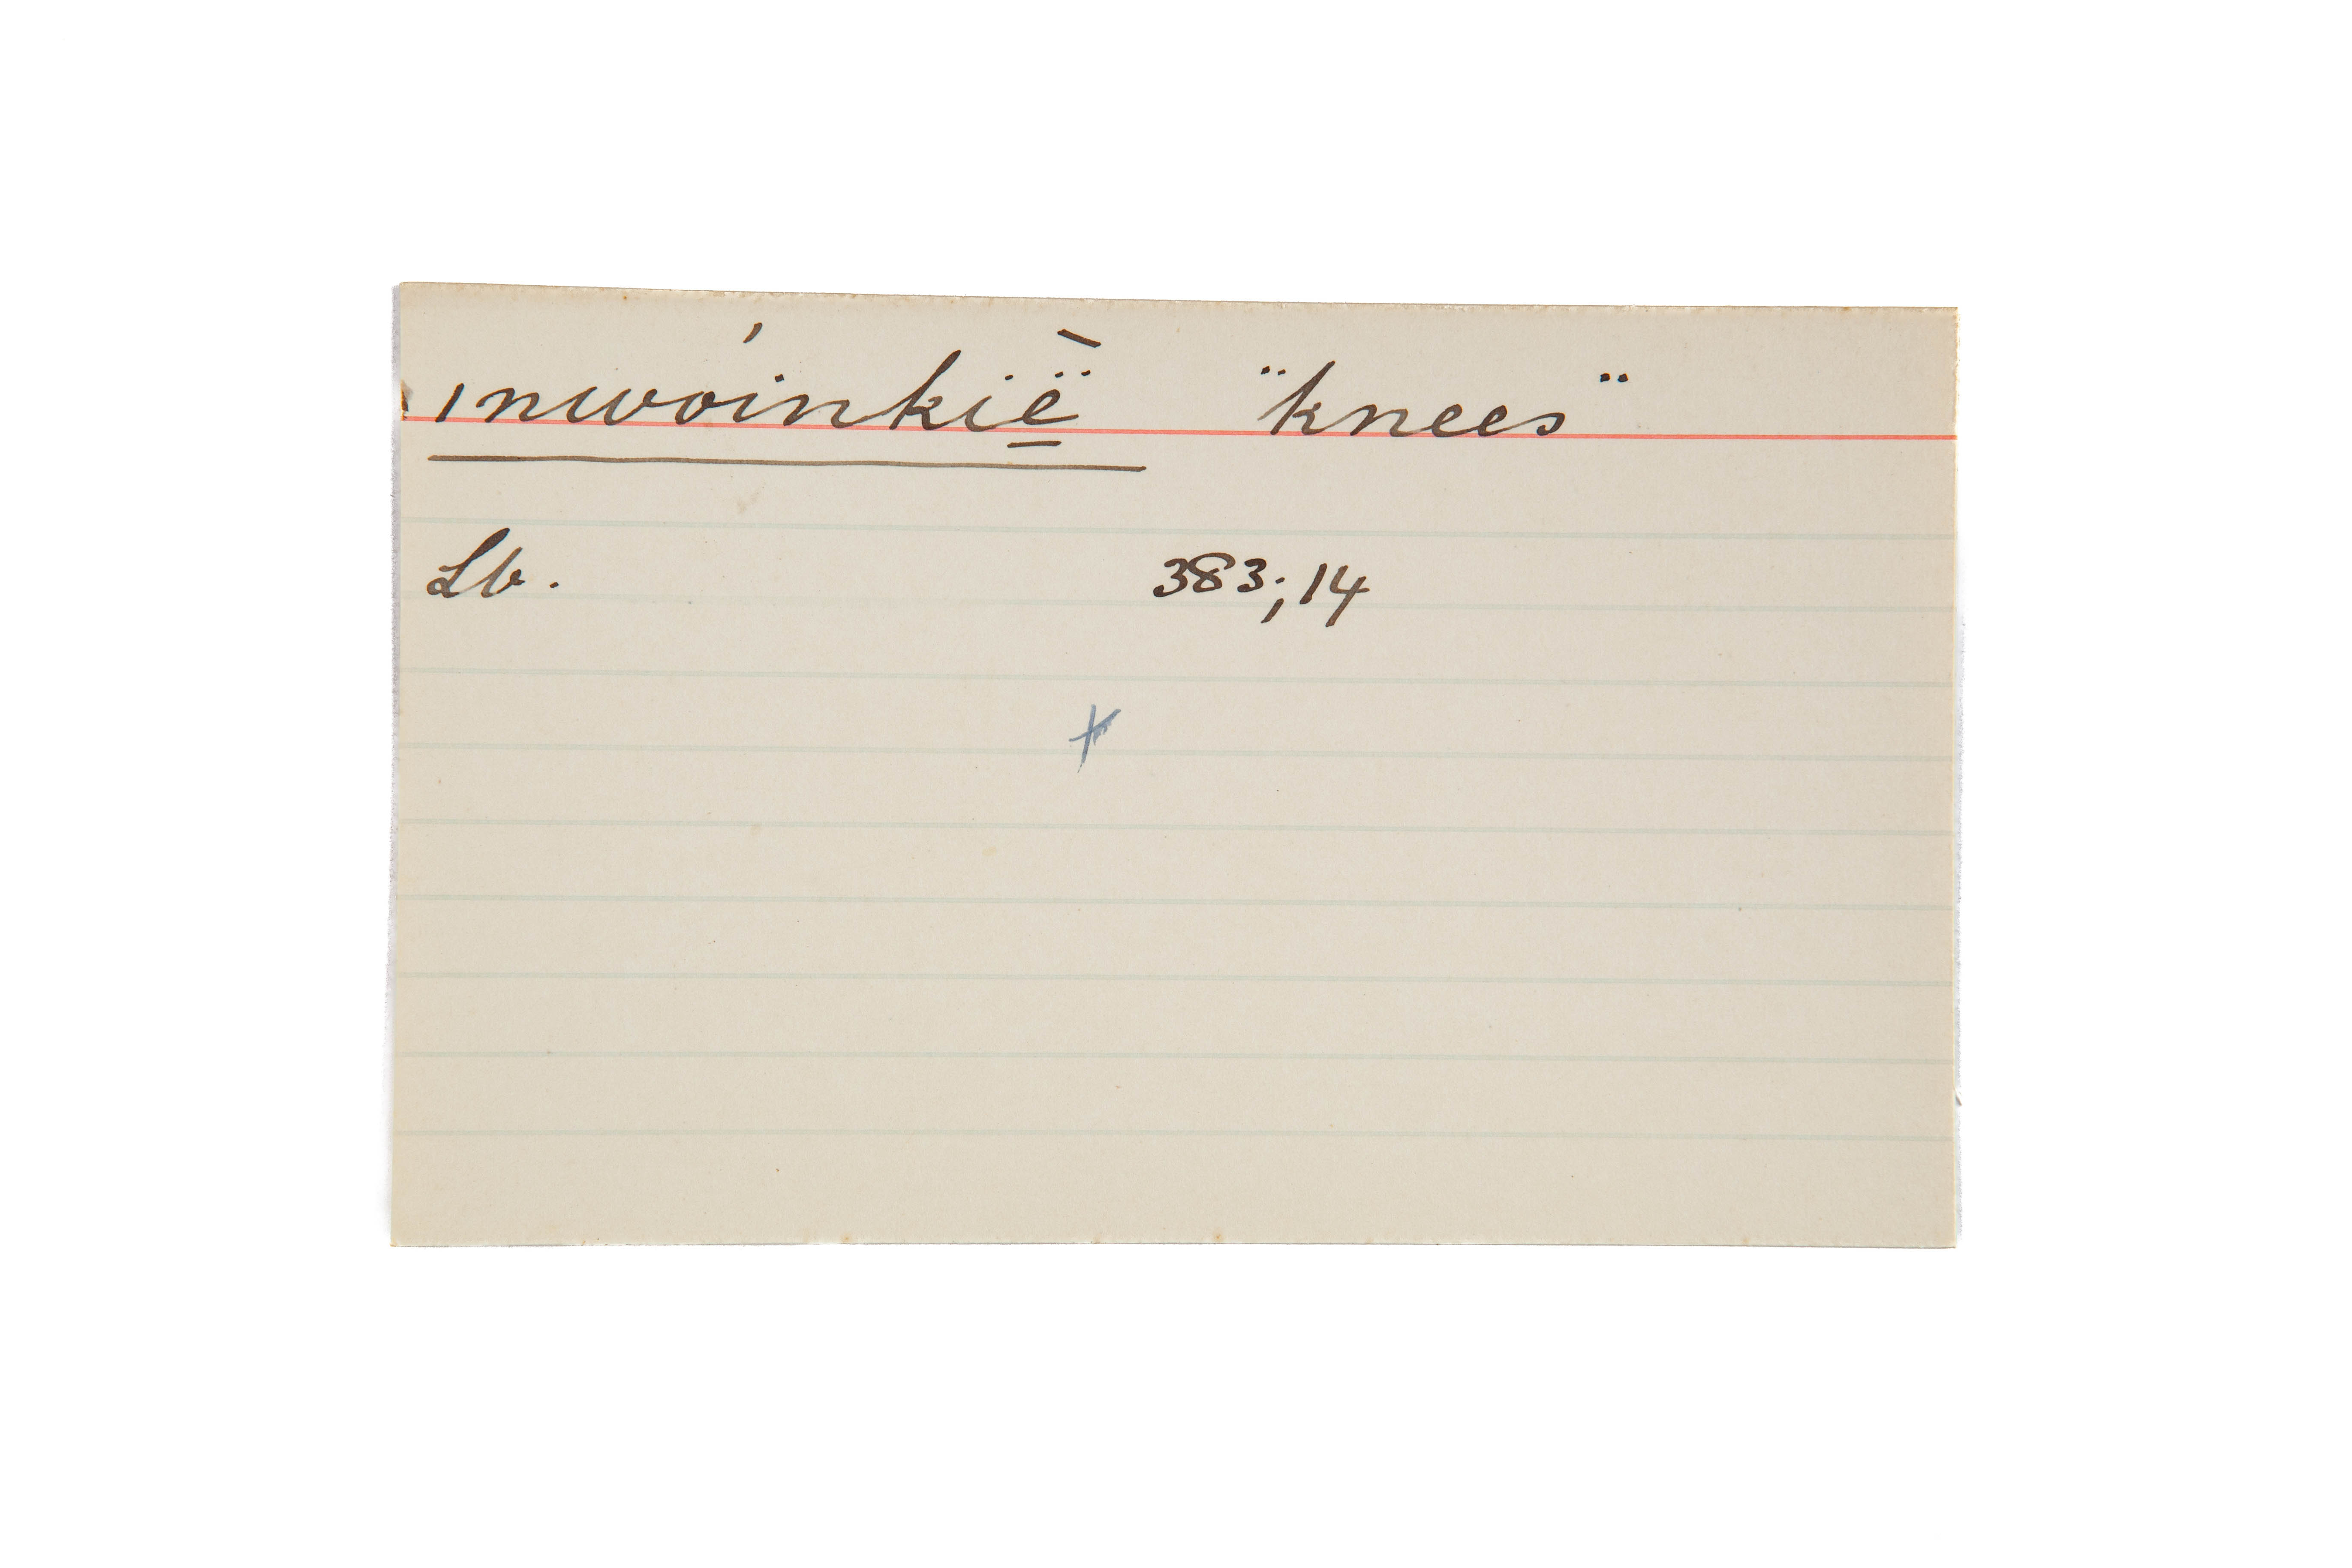 ınwóinkië̠̀ "knees"
Lb. 383; 14
x